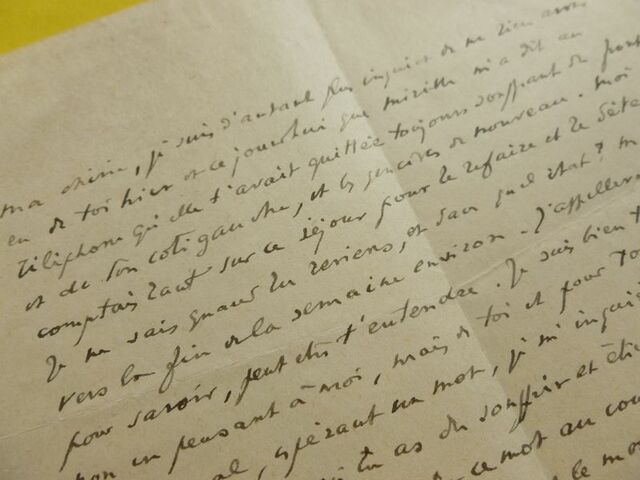 ma chérie, je suis d'autant plus inquiet de ne rien avoir
eu de toi hier et ce jourd'hui que mireille m'a dit au
téléphone qu'elle t'avait quittée toujours souffrant du
et de ton coté gauche, et les gencives de nouveau. moi
comptais tant sur ce séjour pour te refaire et te déte
Je ne sais quand tu reviens, et dans quel état? m
vers la fin de la semaine environ. J'appellerai
pour savoir, peut être t'entendre. Je suis bien t
non en pensant à moi, mais de toi et pour to
al, espérant un mot, je m'inqui
tu as du souffrir et êt
ce mot au cou
le mo